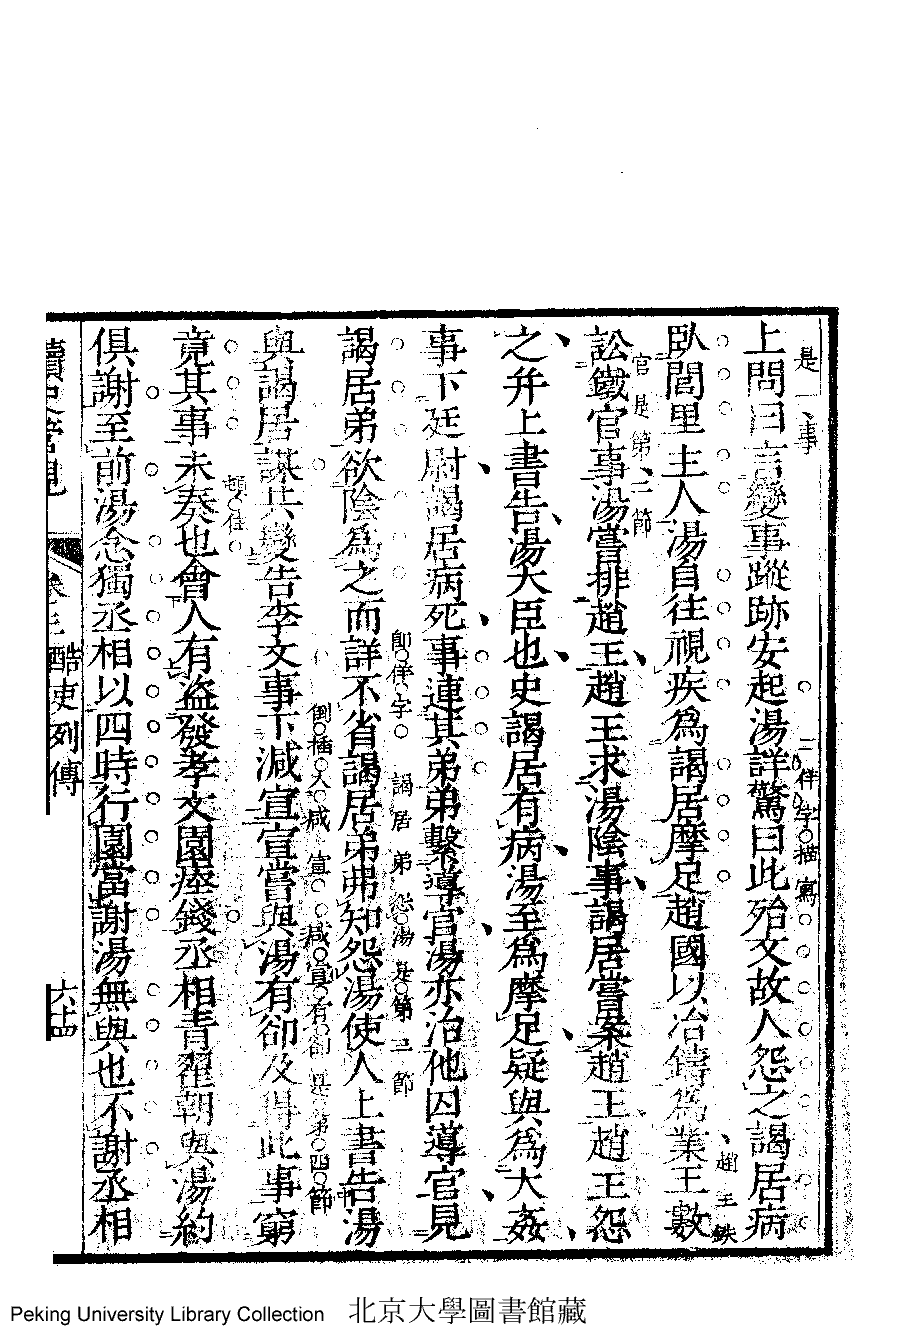 是一事
上問曰言變事蹤跡安起湯詳驚曰此殆文故人怨之謁居病
二佯字描寫
臥閭里主人湯自往視疾爲謁居摩足趙國以冶鑄爲業王數
趙王鉄官是第二節
訟鐵官事湯嘗排趙王趙王求湯陰事謁居嘗案趙王趙王怨
之并上書告湯大臣也史謁居有病湯至爲摩足疑與爲大姦
事下廷尉謁居病死事連其弟弟繫導官湯亦治他囚導官見
卽佯字 謁居弟怨湯是第三節
謁居弟欲陰爲之而詳不省謁居弟弗知怨湯使人上書告湯
倒插入咸宣咸宣有卻是第四節
與謁居謀共變告李文事下減宣宣嘗與湯有卻及得此事窮
頓住
竟其事未奏也會人有盜發孝文園瘞錢丞相青翟朝與湯約
俱謝至前湯念獨丞相以四時行園當謝湯無與也不謝丞相
讀史管見 卷三 酷吏列傳 六十四
Peking University Library Collection 北京大學圖書館藏